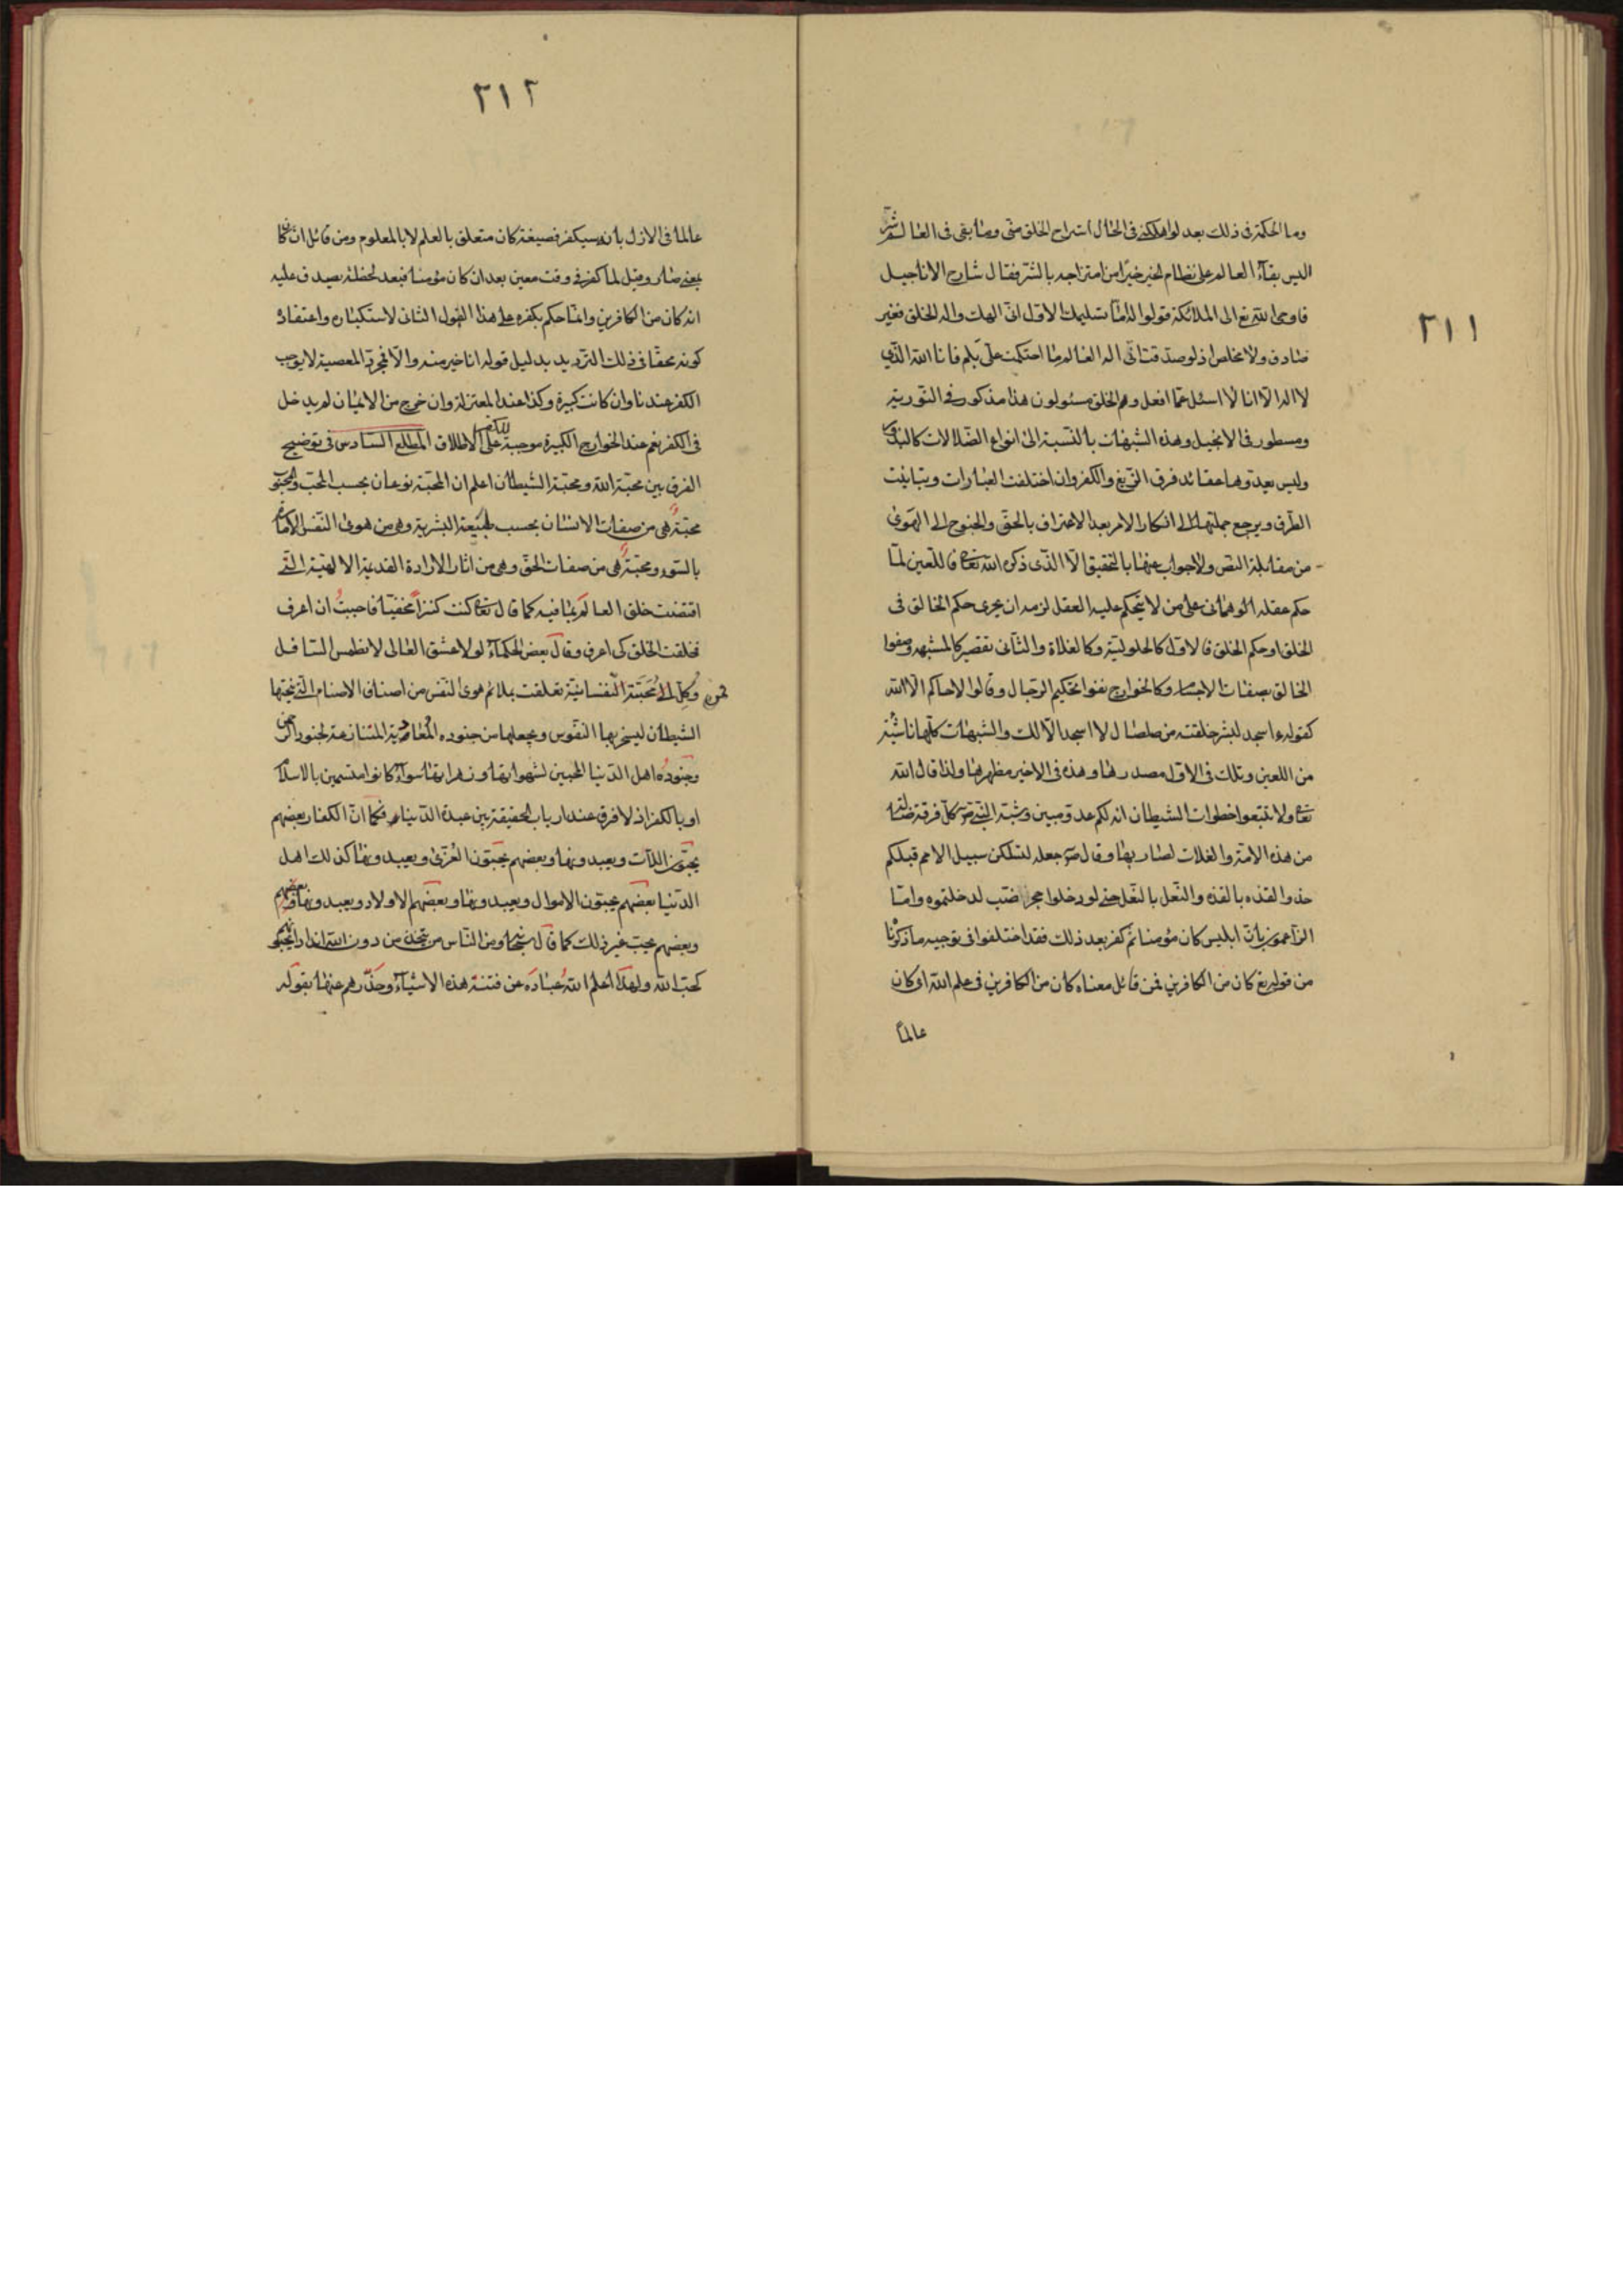 ٢١١
وما الحكمة فى ذلك بعد لو اهلكنى فى الحال استراح الخلق منى وما بقى فى العالم شر
اليس بقآء العالم على نظام الخير خيرا من امتزاجه بالشر فقال شارح الاناجيل
فاوحى الله تع الى الملائكة قولوا له اما تسليمك الاول انى الهك واله الخلق فغير
صادق ولا مخلص اذ لو صدقت انى اله العالم ما احتكمت على بلم فانا الله الذى
لا اله الا انا لا اسئل عما افعل وهم الخلق مسئولون هذا مذكور فى التورية
ومسطور فى الانجيل وهذه الشبهات بالنسبة الى انواع الضلالات كالبذور
وليس يعدوها عقائد فرق الزيغ والكفر وان اختلفت العبارات وتباينت
الطرق ويرجع جملتها الى انكار الامر بعد الاعتراف بالحق والجنوح الى الهوى
من مقابلة النص ولا جواب عنها بالتحقيق الا الذى ذكره الله تعالى فاللعين لما
حكم عقله الوهمانى على من لا يتحكم عليه العقل لزمه ان يجرى حكم الخالق فى
الخلق او حكم الخلق فالاول كالحلولية وكالغلاة والثانى تقصير كالمشبهه وصفوا
الخالق بصفات الاجسام وكالخوارج نفوا تحكيم الرجال وقالوا لا حاكم الا الله
كقوله ءاسجد لبشر خلقته من صلصال لا اسجد الا لك والشبهات كلها ناشئة
من اللعين وتلك فى الاول مصدرها وهذه فى الاخير مظهرها ولذا قال الله
تعالى ولا تتبعوا خطوات الشيطان انه لكم عدو مبين وشبه النبى ص كل فرقة ضالة
من هذه الامة والغلات لضاربها وقال ص جعله لتسلكن سبيل الامم قبلكم
حذو القذه بالقذه والنعل بالنعل حتى لو دخلوا جحر ضب لدخلتموه واما
الزاعمون بان ابليس كان مؤمنا ثم كفر بعد ذلك فقد اختلفوا فى توجيه ما ذكرنا
من قوله تع كان من الكافرين فمن قائل معناه كان من الكافرين فى علم الله اى كان
عالماً
٢١٢
عالما فى الازل بانه سيكفر فصيغة كان متعلق بالعلم لا بالمعلوم ومن قائل ان كان
بمعنى صار وقيل لما كفر فى وقت معين بعد ان كان مؤمنا فبعد لحظة يصدق عليه
انه كان من الكافرين وانما حكم بكفره على هذا القول الثانى لاستكباره واعتقاده
كونه محقا فى ذلك التردید بدليل قوله انا خير منه والا فمجرد المعصية لا يوجب
الكفر عندنا وان كانت كبيرة وكذا عند المعتزلة وان خرج من الايمان لم يدخل
فى الكفر نعم عند الخوارج الكبيرة موجبة للكفر على الاطلاق المطلع السادس فى توضيح
الفرق بين محبة الله ومحبة الشيطان اعلم ان المحبة نوعان بحسب المحب والمحبوب
محبة هى من صفات الانسان بحسب طبيعة البشرية وهى من هوى النفس الامارة
بالسوء ومحبة هى من صفات الحق وهى من اثار الارادة القديمة الالهية التى
اقتضت خلق العالم بما فيه كما قال تعالى كنت كنزاً مخفيا فاحببتُ ان اعرف
فخلقت الخلق كى اعرف وقال بعض الحكمآء لولا عشق العالى لانطمس السافل
فمن وُكِلَ الى محَبَّة النّفسانيّة تعلقت بملائم هوى النفس من اصناف الاصنام التى ينحتها
الشيطان ليسخر بها النفوس ويجعلها من جنوده المعادية المتنازعة لجنود الرحمن
وجنوده اهل الدنيا المحبين لشهواتها وزهراتها سوآء كانوا متسمين بالاسلام
او بالكفر اذ لا فرق عند ارباب الحقيقة بين عبدة الدنيا فكما ان الكفار بعضهم
يحبون اللآت ويعبدونها وبعضهم يحبون العزى ويعبدونها كذلك اهل
الدنيا بعضهم يحبون الاموال ويعبدونها وبعضهم الاولاد ويعبدونها وبعضهم
وبعضهم يحب غير ذلك كما قال سبحانه ومن الناس من يتخذ من دون الله اندادا يحبونهم
كحب الله ولهذا اعلم الله عباده عن فتنة هذه الاشيآء وحذّرهم عنها بقوله